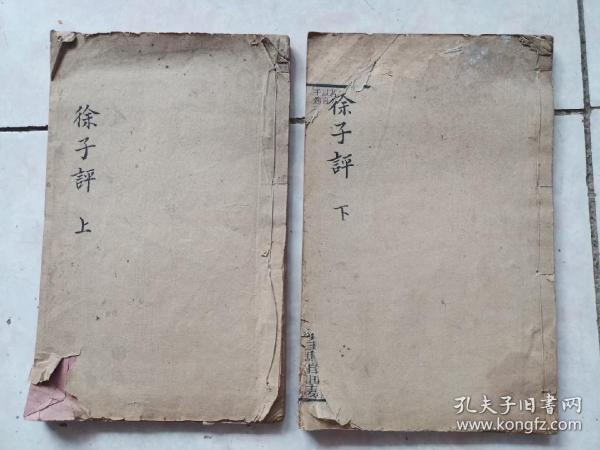 徐子評
上
徐子評
下
孔夫子旧书网
www.kongfz.com